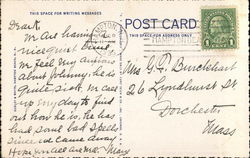 THIS SPACE FOR WRITING MESSAGES
POST CARD
THIS SPACE FOR ADDRESS ONLY
Dear K.
We are having a
nice quiet time.
We feel very anxious
about Johnny; he is
quite sick. We call
up every day to find
out how he is, he has
had some bad spells
since we came away.
Hope you all are well. Mary
BOSTON
1 CENT 1
Mrs G. P. Burckhart
26 Lyndhurst St
Dorchester
Mass